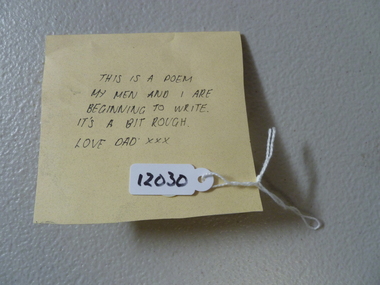 THIS IS A POEM
MY MEN AND I ARE
BEGINNING TO WRITE.
IT'S A BIT ROUGH.
LOVE DAD XXX
12030